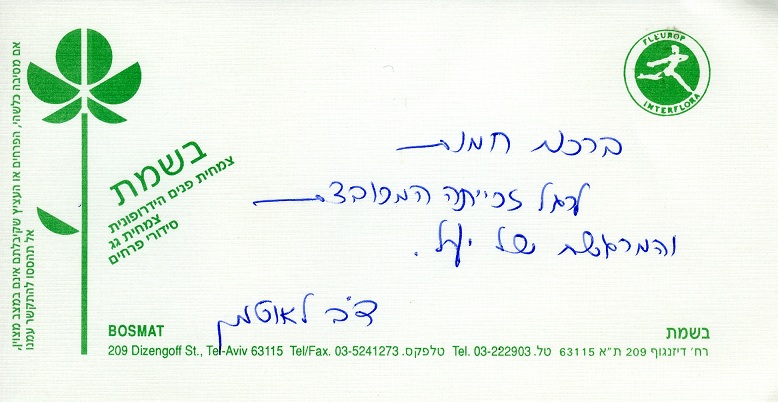 FLEUROP
INTERFLORA
אם מסיבה כלשהי, הפרחים או העציץ שקיבלתם אינם במצב מצויין,
אל תהססו להתקשר עמנו
בשמת
צמחית פנים הידרופונית
צמחית גג
סידורי פרחים
ברכות חמות
לרגל זכייתה המכובדת
והמרגשת של יעל.
לאוטמן
BOSMAT
בשמת
209 Dizengoff St., Tel-Aviv 63115 Tel/Fax. 03-5241273 .טלפקס Tel. 03-222903 .טל רח' דיזנגוף 209 ת"א 63115